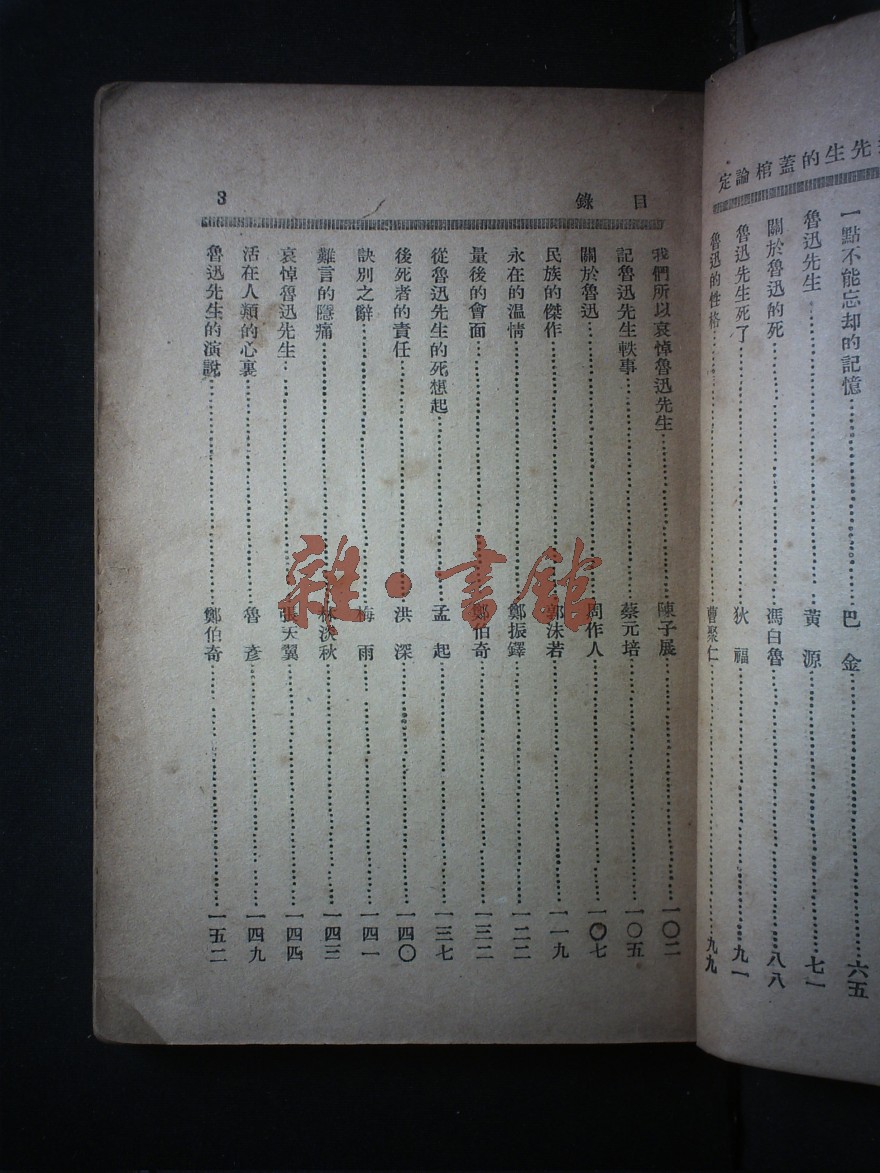 先生的蓋棺論定
一點不能忘却的記憶……巴金……六五
魯迅先生……黃源……七一
關於魯迅的死……馮白魯……八八
魯迅先生死了……狄福……九一
魯迅的性格……曹聚仁……九九
目錄 3
我們所以哀悼魯迅先生……陳子展……一〇二
記魯迅先生軼事……蔡元培……一〇五
關於魯迅……周作人……一〇七
民族的傑作……郭沫若……一一九
永在的溫情……鄭振鐸……一二二
量後的會面……鄭伯奇……一三二
從魯迅先生的死想起……孟起……一三七
後死者的責任……洪深……一四〇
訣別之辭……梅雨……一四一
難言的隱痛……林淡秋……一四三
哀悼魯迅先生……張天翼……一四四
活在人類的心裏……魯彥……一四九
魯迅先生的演說……鄭伯奇……一五二
雜·書館